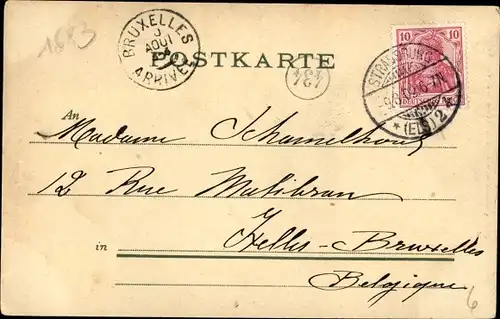 1683
BRUXELLES
AOUT
ARRIVEE
POSTKARTE
10 10
STRASSBURG
* (ELS) 2 *
434
An
Madame Schamelhout
12 Rue Malibran
in Ixelles-Bruxelles
Belgique
6